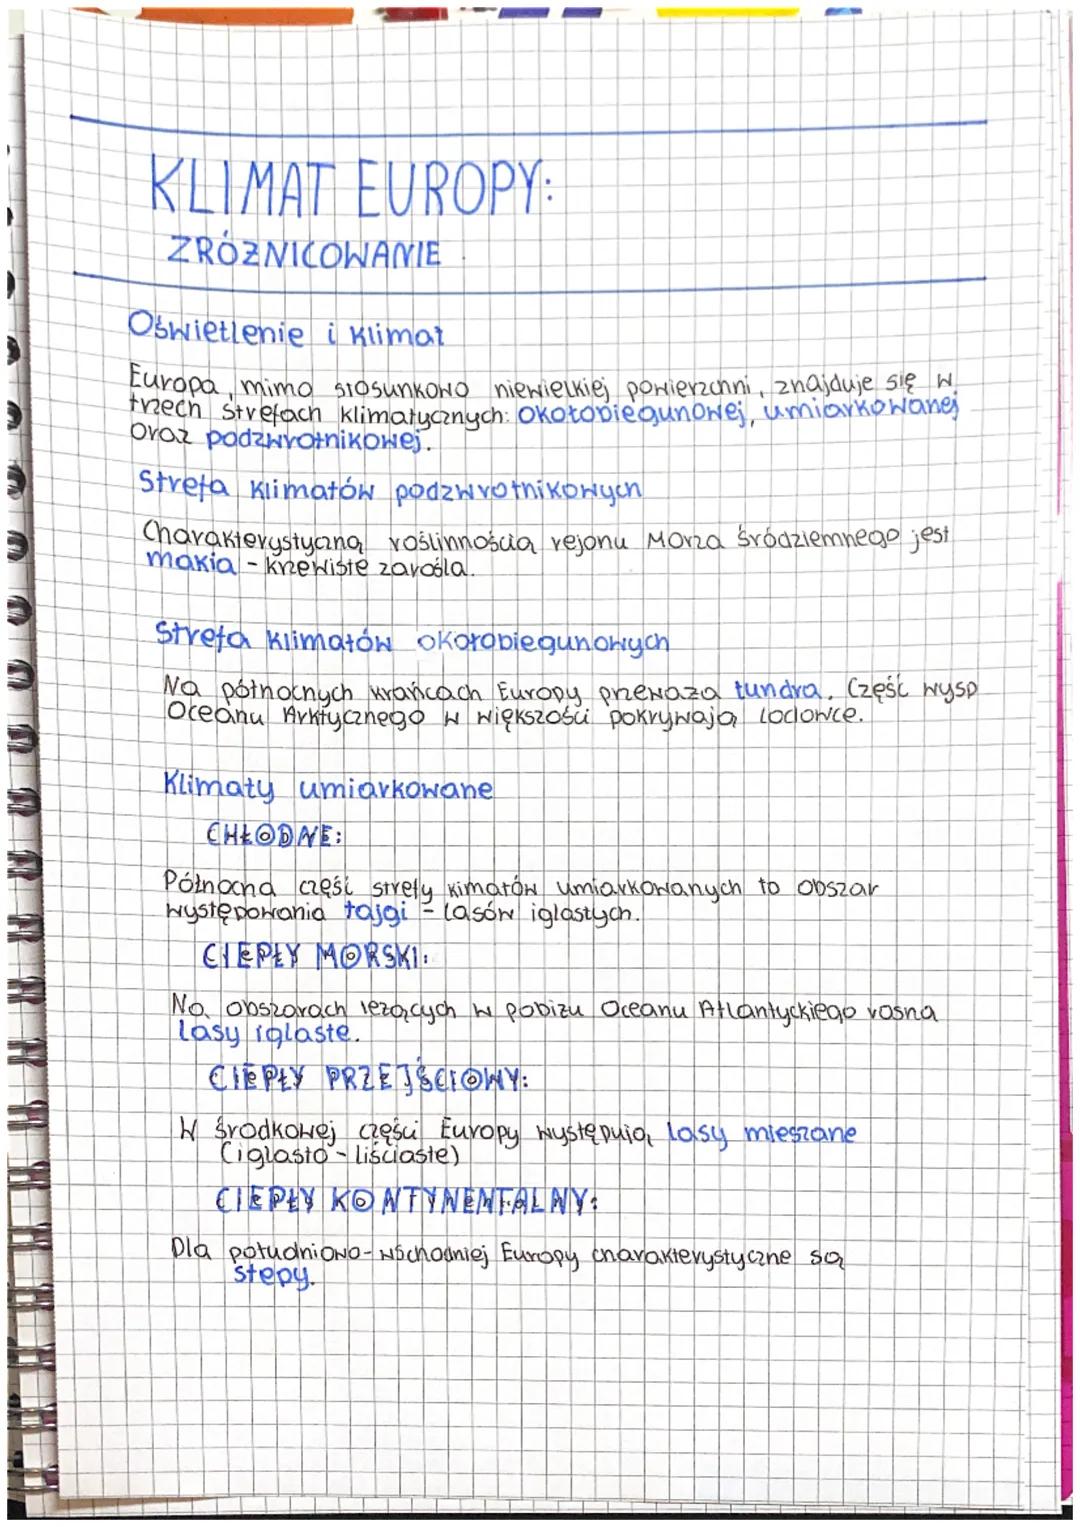 KLIMAT EUROPY:
ZRÓŻNICOWANIE
Oświetlenie i klimat
Europa, mimo stosunkowo niewielkiej powierzchni, znajduje się w
trzech strefach klimatycznych: okołobiegunowej, umiarkowanej
oraz podzwrotnikowej.
Strefa klimatów podzwrotnikowych
Charakterystyczną roślinnością rejonu Morza Śródziemnego jest
makia - krzewiste zarośla.
Strefa klimatów okołobiegunowych
Na północnych krańcach Europy przeważa tundra. Część wysp
Oceanu Arktycznego w większości pokrywają lodowce.
Klimaty umiarkowane
CHŁODNE:
Północna część strefy kimatów umiarkowanych to obszar
występowania tajgi - lasów iglastych.
CIEPŁY MORSKI:
Na obszarach leżących w pobliżu Oceanu Atlantyckiego rosną
lasy iglaste.
CIEPŁY PRZEJŚCIOWY:
W środkowej części Europy występują lasy mieszane
(iglasto - liściaste)
CIEPŁY KONTYNENTALNY:
Dla południowo-wschodniej Europy charakterystyczne są
stepy.